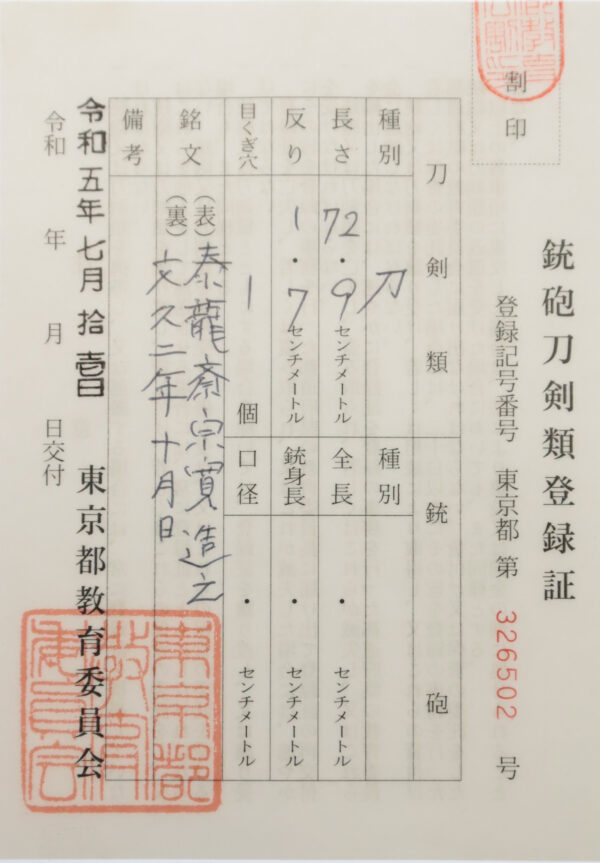 銃砲刀剣類登録証
登録記号番号 東京都 第 326502 号
割印
刀剣類
種別 刀
長さ 72.9センチメートル
反り 1.7センチメートル
目くぎ穴 1 個
銘文 (表)泰龍斎宗寛造之
(裏)文久二年十月日
備考
銃砲
種別
全長 ・ センチメートル
銃身長 ・ センチメートル
口径 ・ センチメートル
令和五年七月拾壱日
令和 年 月 日交付
東京都教育委員会
東京都教育委員会